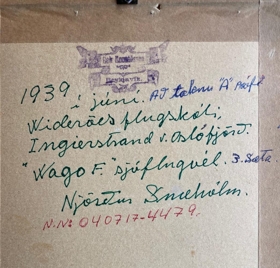 1939
í júní. Að taka "A" próf
Wideröes flugskóli,
Ingierstrand v. Oslófjörð.
"Wago F." sjóflugvél. 3. sæta
Njörður Snæhólm.
N.Nr. 040717-4479.